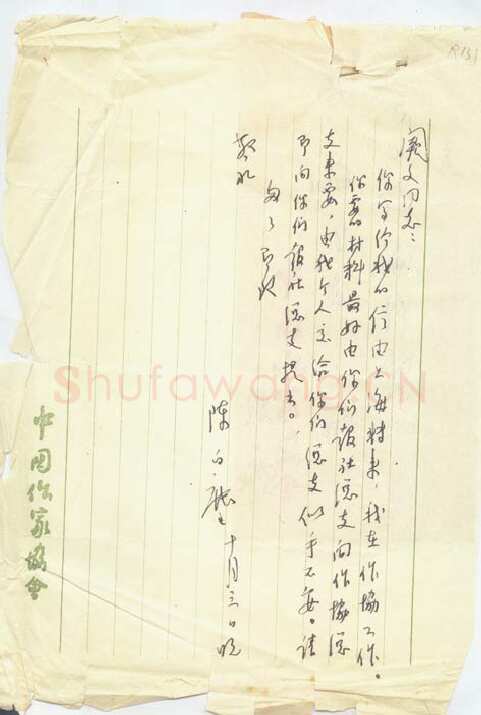 文同志：
你写给我的信由上海转来，我在作协工作。
你要的材料最好由你们报社总支向作协总
支来要，由我个人交给你们总支似乎不妥。请
即向你们报社总支提出。
匆匆 即致
敬礼
陈白尘 十月三日晚
中国作家協會
Shufawang.CN